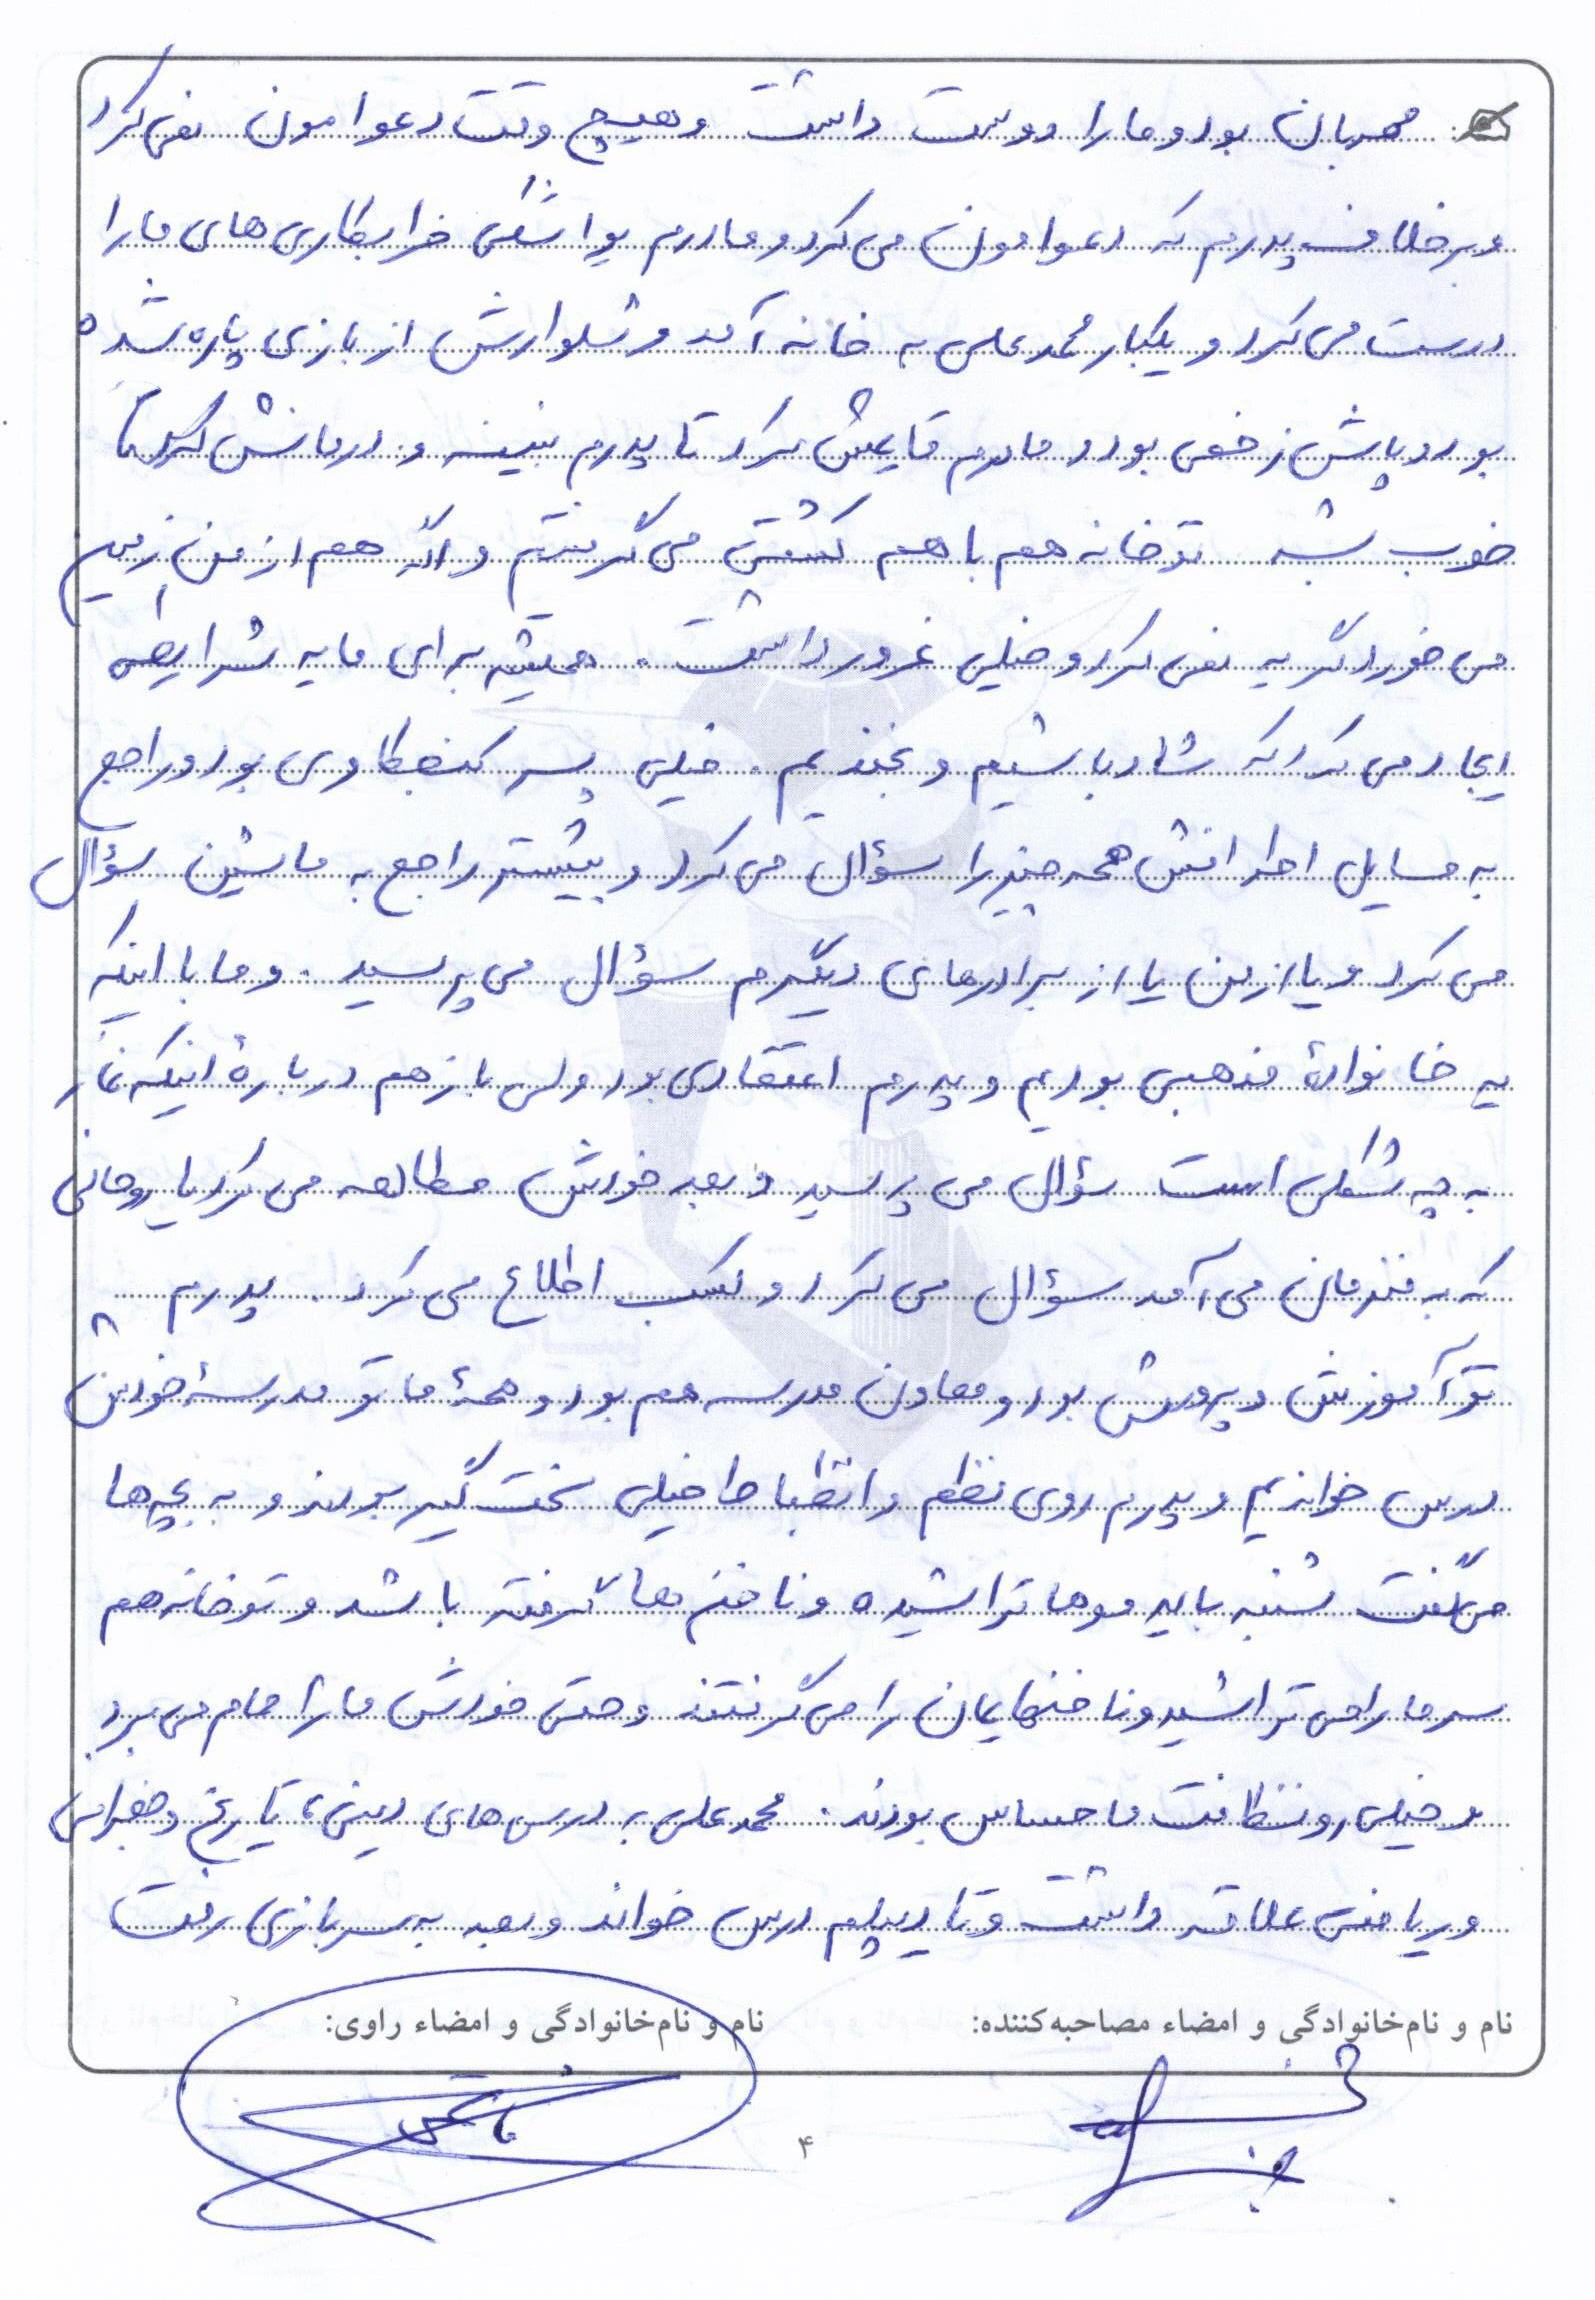 مهربان بود و ما را دوست داشت و هیچ وقت دعوامون نمی‌کرد
و برخلاف پدرم که دعوامون می‌کرد و مادرم یواشکی خرابکاری‌های ما را
درست می‌کرد و یکبار محمدعلی به خانه آمد و شلوارش از بازی پاره شده
بود و پاش زخمی بود و مادرم قایمش کرد تا پدرم نبینه و درمانش کرد تا
خوب بشه تو خانه هم با هم کشتی می‌گرفتیم و اگه هم از من زمین
می‌خورد گریه نمی‌کرد و خیلی غرور داشت . همیشه برای ما یه شرایطی
ایجاد می‌کرد که شاد باشیم و بخندیم . خیلی پسر کنجکاوی بود و راجع
به مسایل اطرافش همه چیز را سؤال می‌کرد و بیشتر راجع به ماشین سؤال
می‌کرد و یا از من یا از برادرهای دیگرم سؤال می‌پرسید . و ما با اینکه
یه خانوادهٔ مذهبی بودیم و پدرم اعتقادی بود ولی باز هم دربارهٔ اینکه نماز
به چه شکلی است سؤال می‌پرسید و بعد خودش مطالعه می‌کرد یا روحانی
که به منزلمان می‌آمد سؤال می‌کرد و کسب اطلاع می‌کرد . پدرم
تو آموزش و پرورش بود و معاون مدرسه هم بود و همهٔ ما تو مدرسهٔ خودش
درس خواندیم و پدرم روی نظم و انظباط خیلی سخت‌گیر بودند و به بچه‌ها
می‌گفت شنبه باید موها تراشیده و ناخن‌ها گرفته باشد و تو خانه هم
سر ما را می‌تراشید و ناخنهایمان را می‌گرفتند و حتی خودش ما را حمام می‌برد
و خیلی رو نظافت ما حساس بودند . محمدعلی به درس‌های دینی، تاریخ و جغرافی
و ریاضی علاقه داشت و تا دیپلم درس خواند و بعد به سربازی رفت
نام و نام‌خانوادگی و امضاء مصاحبه‌کننده: نام و نام‌خانوادگی و امضاء راوی:
۴